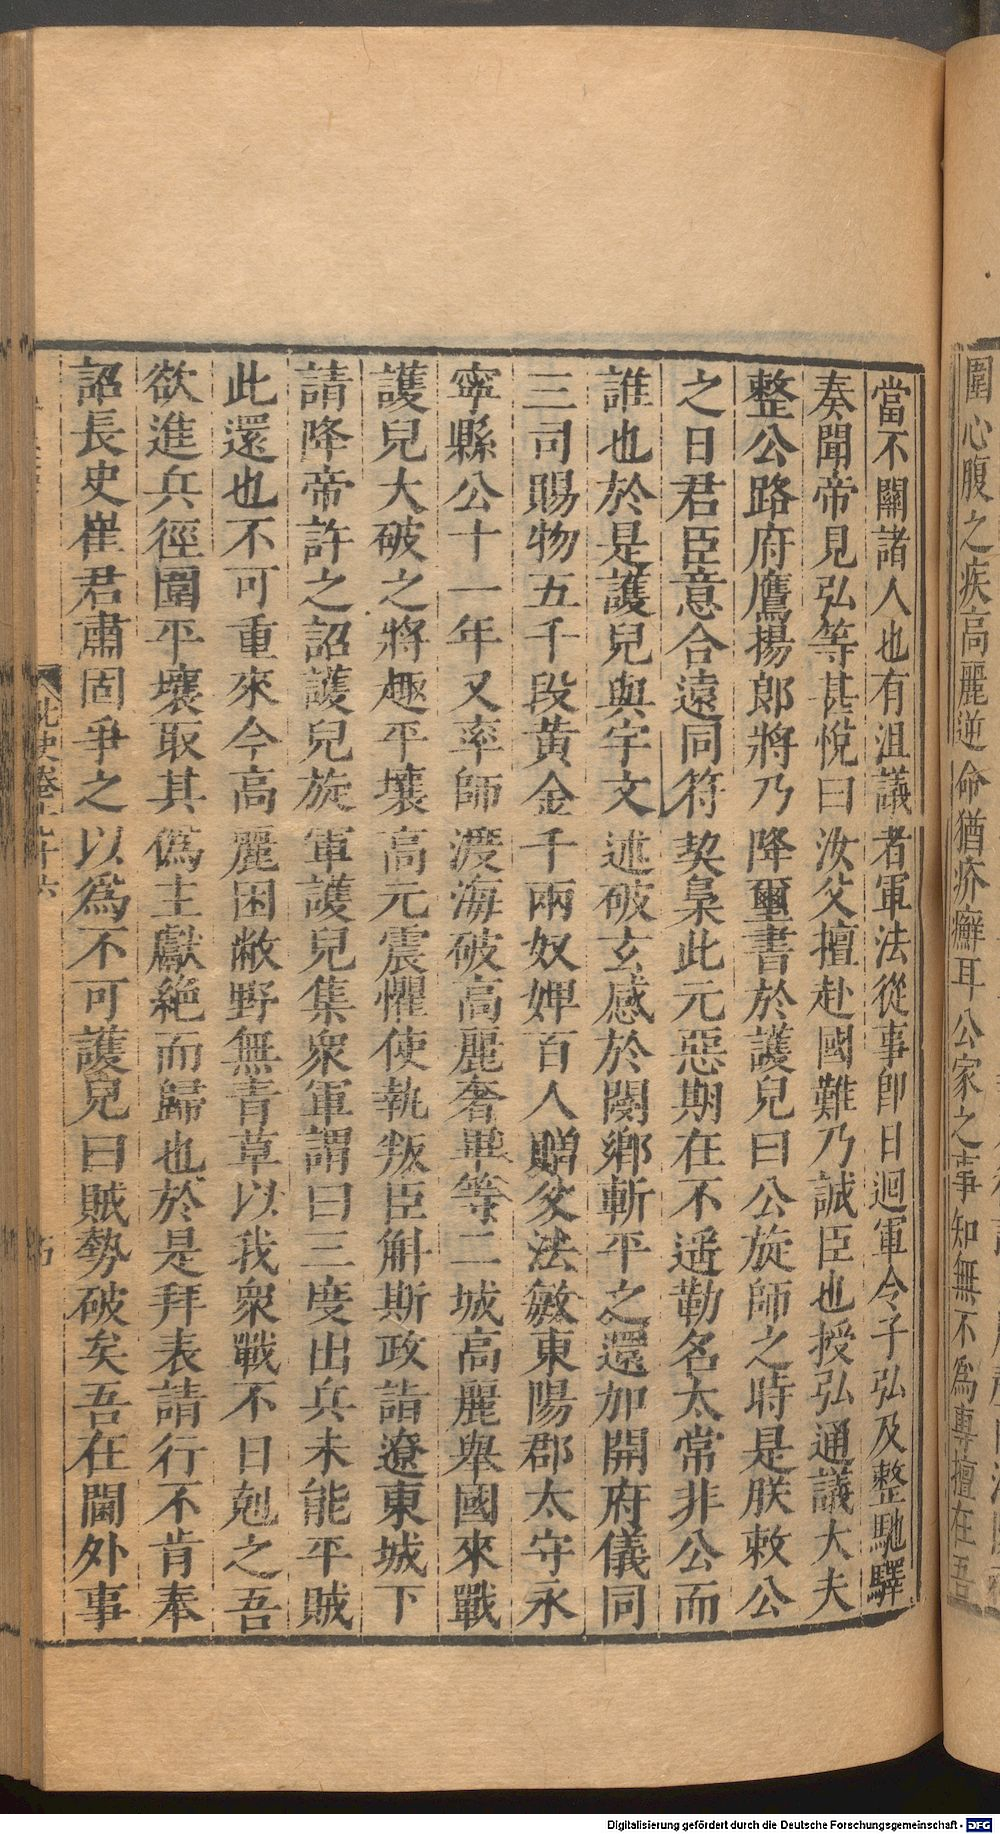 圍心腹之疾高麗逆命猶疥癬耳公家之事知無不爲專擅在吾
當不關諸人也有沮議者軍法從事卽日迴軍令子弘及整馳驛
奏聞帝見弘等甚悅曰汝父擅赴國難乃誠臣也授弘通議大夫
整公路府鷹揚郎將乃降璽書於護兒曰公旋師之時是朕敕公
之日君臣意合遠同符契梟此元惡期在不遥勒名太常非公而
誰也於是護兒與宇文述破玄感於閿鄉斬平之還加開府儀同
三司賜物五千段黃金千兩奴婢百人贈父法敏東陽郡太守永
寧縣公十一年又率師渡海破高麗奢畢等二城高麗舉國來戰
護兒大破之將趣平壤高元震懼使執叛臣斛斯政詣遼東城下
請降帝許之詔護兒旋軍護兒集衆軍謂曰三度出兵未能平賊
此還也不可重來今高麗困敝野無青草以我衆戰不日剋之吾
欲進兵徑圍平壤取其偽主獻絶而歸也於是拜表請行不肯奉
詔長史崔君肅固爭之以爲不可護兒曰賊勢破矣吾在閫外事
北史卷七十六
Digitalisierung gefördert durch die Deutsche Forschungsgemeinschaft - DFG